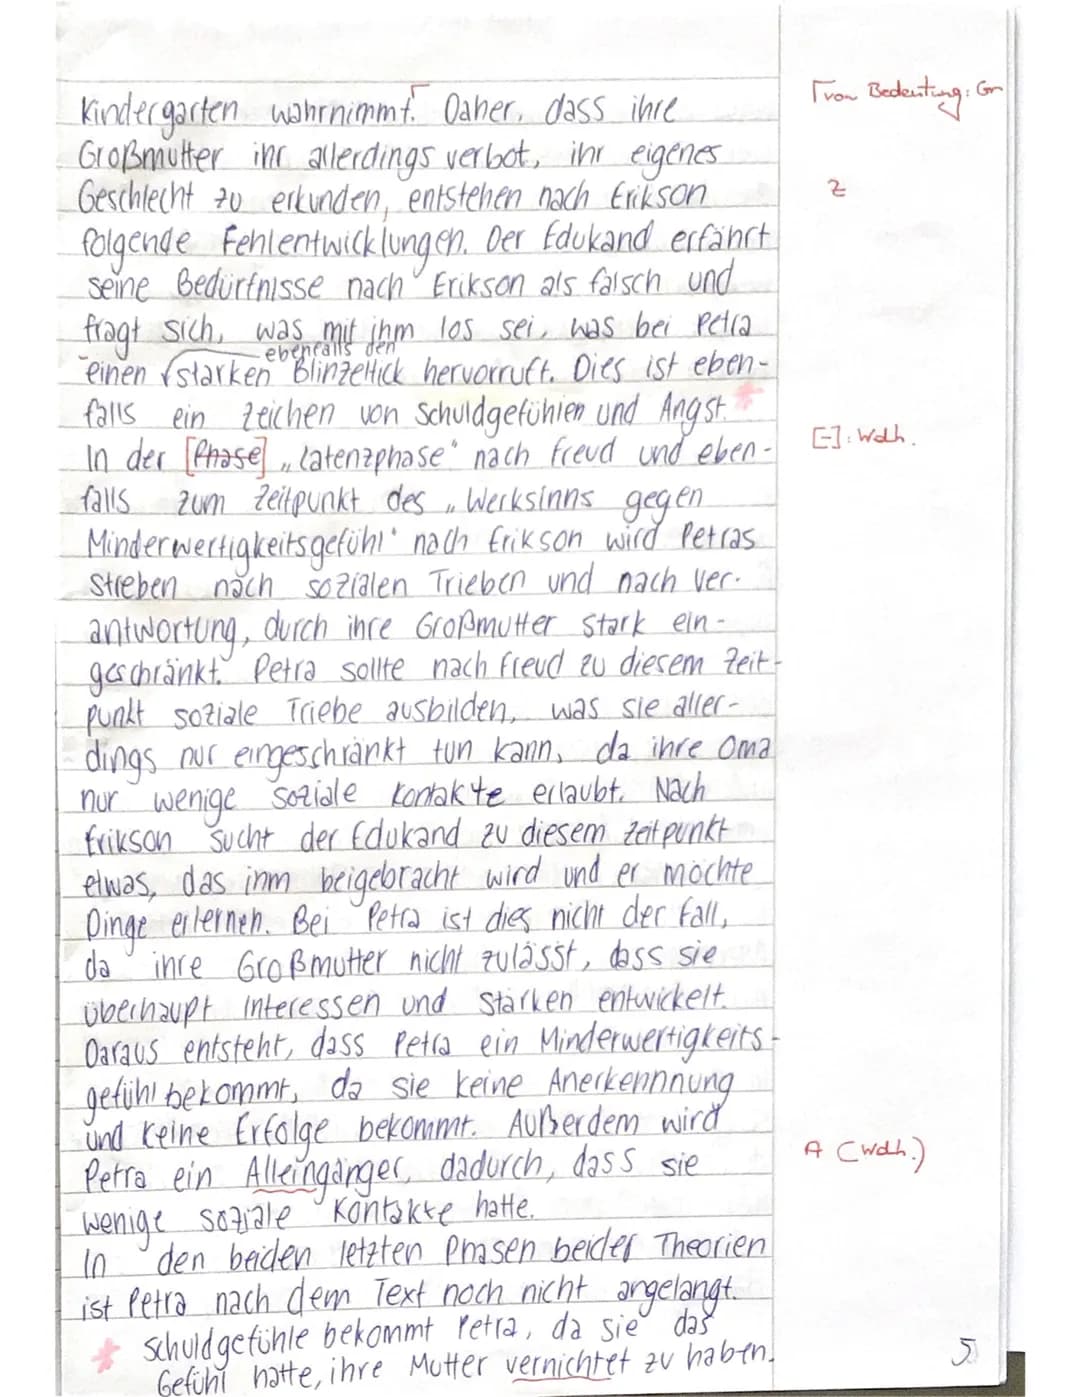 Kindergarten wahrnimmt.⌈ Daher, dass ihre
⌈von Bedeutung: Gr
Großmutter ihr allerdings verbot, ihr eigenes
Geschlecht zu erkunden, entstehen nach Erikson
Z
folgende Fehlentwicklungen. Der Edukand erfährt
seine Bedürfnisse nach Erikson als falsch und
fragt sich, was mit ihm los sei, was bei Petra
ebenfalls den
einen √starken Blinzeltick hervorruft. Dies ist eben-
falls ein Zeichen von Schuldgefühlen und Angst. *
In der [Phase] „Latenzphase" nach Freud und eben-
[-]: Wdh.
falls zum Zeitpunkt des „Werksinns gegen
Minderwertigkeitsgefühl" nach Erikson wird Petras
Streben nach sozialen Trieben und nach Ver-
antwortung, durch ihre Großmutter stark ein-
geschränkt. Petra sollte nach Freud zu diesem Zeit-
punkt soziale Triebe ausbilden, was sie aller-
dings nur eingeschränkt tun kann, da ihre Oma
nur wenige soziale Kontakte erlaubt. Nach
Erikson sucht der Edukand zu diesem Zeitpunkt
etwas, das ihm beigebracht wird und er möchte
Dinge erlernen. Bei Petra ist dies nicht der Fall,
da ihre Großmutter nicht zulässt, dass sie
überhaupt Interessen und Stärken entwickelt.
Daraus entsteht, dass Petra ein Minderwertigkeits-
gefühl bekommt, da sie keine Anerkennnung
und keine Erfolge bekommt. Außerdem wird
Petra ein Alleingänger, dadurch, dass sie
A (Wdh.)
wenige soziale Kontakte hatte.
In den beiden letzten Phasen beider Theorien
ist Petra nach dem Text noch nicht angelangt.
* Schuldgefühle bekommt Petra, da sie das
Gefühl hatte, ihre Mutter vernichtet zu haben.
5